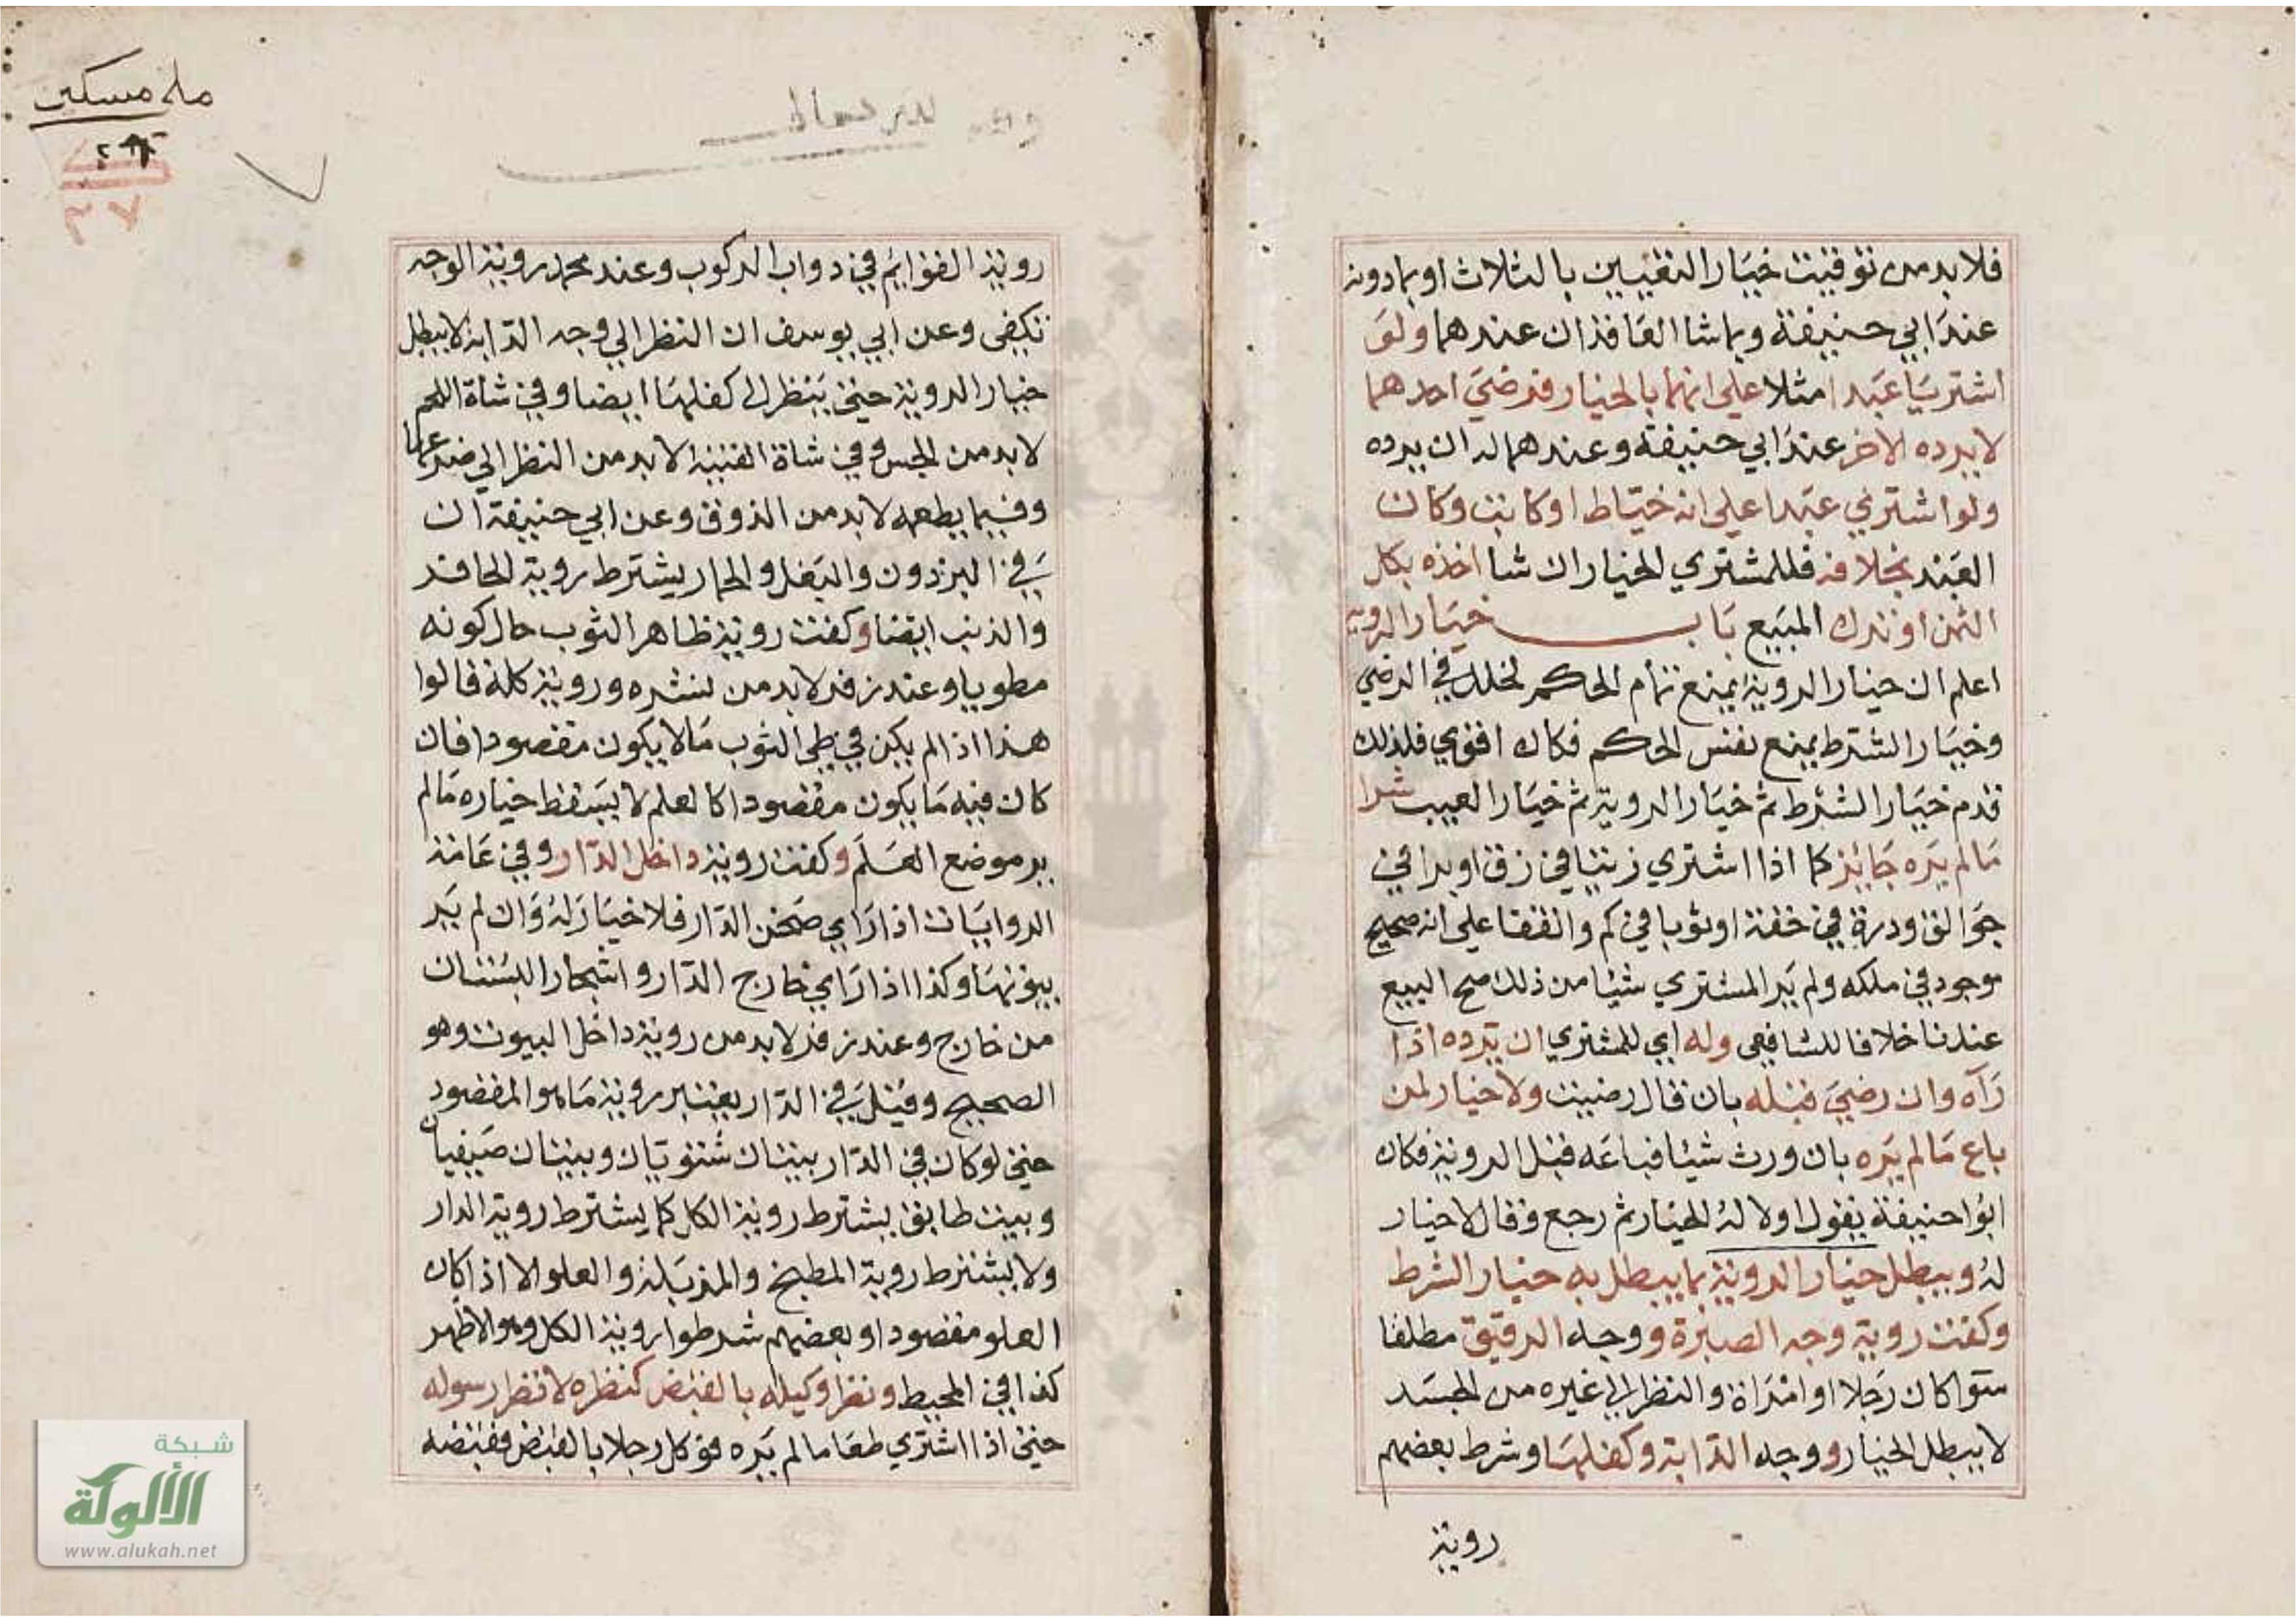 فلا بد من توقيت خيار التعيين بالثلاث او بما دونه
عند ابي حنيفة وبما شا العاقدان عندهما ولو
اشتريا عبدا مثلا على انهما بالخيار فرضي احدهما
لا يرده الاخر عند ابي حنيفة وعندهما له ان يرده
ولو اشتري عبدا على انه خياط او كاتب وكان
العبد بخلافه فللمشتري الخيار ان شا اخذه بكل
الثمن او ترك المبيع باب خيار الروية
اعلم ان خيار الروية يمنع تمام الحكم لخلل في الرضي
وخيار الشرط يمنع نفس الحكم فكان اقوي فلذلك
قدم خيار الشرط ثم خيار الروية ثم خيار العيب شرا
ما لم يره جايز كما اذا اشتري زيتا في زق او برا في
جوالق ودرة في حقة او ثوبا في كم واتفقا على انه صحيح
موجود في ملكه ولم ير المشتري شيئا من ذلك صح البيع
عندنا خلافا للشافعي وله اي للمشتري ان يرده اذا
رآه وان رضي قبله بان قال رضيت ولا خيار لمن
باع ما لم يره بان ورث شيئا فباعه قبل الروية فكان
ابوا حنيفة يقول اولا له الخيار ثم رجع وقال لا خيار
له ويبطل خيار الروية بما يبطل به خيار الشرط
وكفت روية وجه الصبرة ووجه الرقيق مطلقا
سوا كان رجلا او امراة والنظر الي غيره من الجسد
لا يبطل الخيار ووجه الدابة وكفلها وشرط بعضهم
روية
ملا مسكين
روية القوايم في دواب الركوب وعند محمد روية الوجه
تكفي وعن ابي يوسف ان النظر الي وجه الدابة لا يبطل
خيار الروية حتي ينظر الى كفلها ايضا وفي شاة اللحم
لا بد من الجس وفي شاة القنية لا بد من النظر الي ضرعها
وفيما يطعم لا بد من الذوق وعن ابي حنيفة ان
في البرذون والبغل والحمار يشترط روية الحافر
والذنب ايضا وكفت روية ظاهر الثوب حال كونه
مطويا وعند زفر لا بد من نشره وروية كله قالوا
هذا اذا لم يكن في طي الثوب ما لا يكون مقصودا فان
كان فيه ما يكون مقصودا كالعلم لا يسقط خياره ما لم
ير موضع العلم وكفت روية داخل الدار وفي عامة
الروايات اذا راي صحن الدار فلا خيار له وان لم ير
بيوتها وكذا اذا راي خارج الدار واشجار البستان
من خارج وعند زفر لا بد من روية داخل البيوت وهو
الصحيح وقيل في الدار يعتبر روية ما هو المقصود
حتي لو كان في الدار بيتان شتويان وبيتان صيفيان
وبيت طابق يشترط روية الكل كما يشترط روية الدار
ولا يشترط روية المطبخ والمزبلة والعلو الا اذا كان
العلو مقصودا وبعضهم شرطوا روية الكل وهو الاظهر
كذا في المحيط ونظر وكيله بالقبض كنظره لا نظر رسوله
حتي اذا اشتري طعاما لم يره فوكل رجلا بالقبض فقبضه
شبكة
الألوكة
www.alukah.net